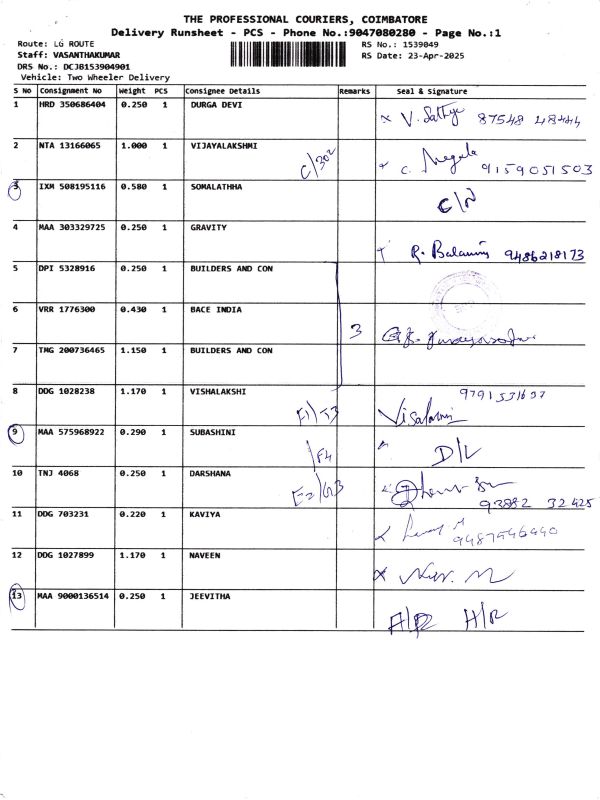 THE PROFESSIONAL COURIERS, COIMBATORE
Delivery Runsheet - PCS - Phone No.:9047080280 - Page No.:1
Route: LG ROUTE
RS No.: 1539049
Staff: VASANTHAKUMAR
RS Date: 23-Apr-2025
DRS No.: DCJB153904901
Vehicle: Two Wheeler Delivery
S No Consignment No Weight PCS Consignee Details Remarks Seal & Signature
1 HRD 350686404 0.250 1 DURGA DEVI
V. Sathya 87548 48444
2 NTA 13166065 1.000 1 VIJAYALAKSHMI
C/302 C. Megala 9159051503
3 IXM 508195116 0.580 1 SOMALATHHA
C/N
4 MAA 303329725 0.250 1 GRAVITY
R. 9486218173
5 DPI 5328916 0.250 1 BUILDERS AND CON
6 VRR 1776300 0.430 1 BACE INDIA
3
7 TMG 200736465 1.150 1 BUILDERS AND CON
8 DDG 1028238 1.170 1 VISHALAKSHI
9791531637
F1/J3
9 MAA 575968922 0.290 1 SUBASHINI
/F4 D/L
10 TNJ 4068 0.250 1 DARSHANA
E2/G3
93882 32425
11 DDG 703231 0.220 1 KAVIYA
9487546440
12 DDG 1027899 1.170 1 NAVEEN
13 MAA 9000136514 0.250 1 JEEVITHA
H/R